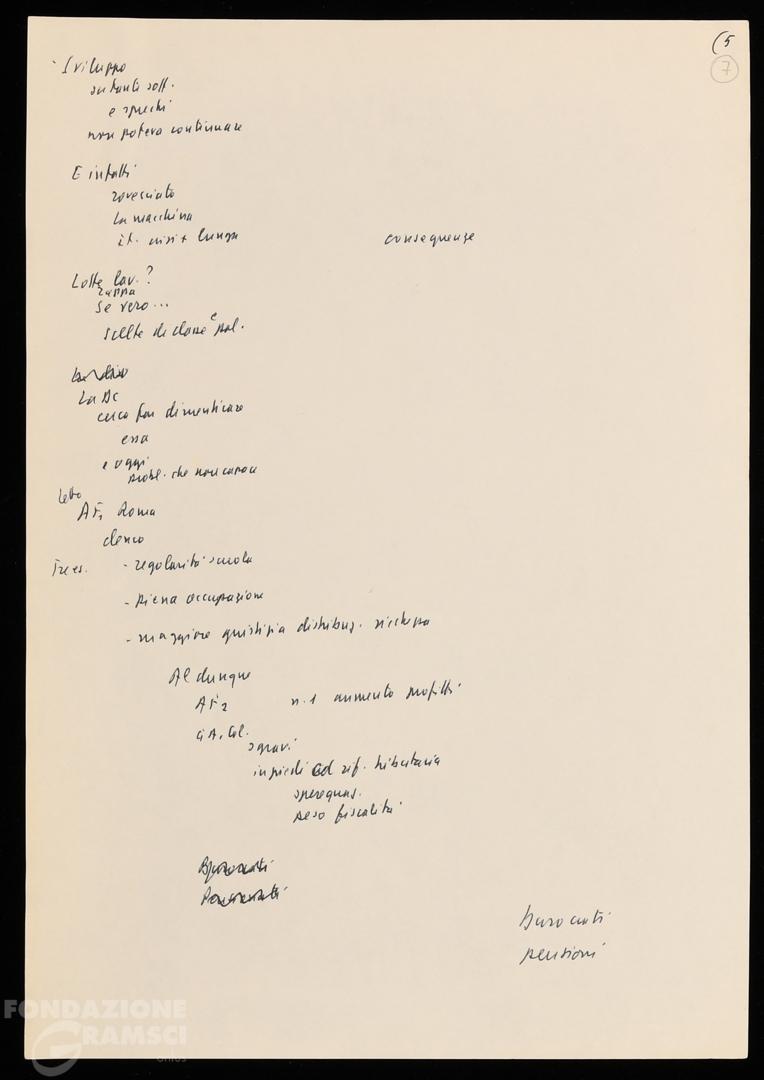 (5
7
Sviluppo
su tanti soff.
e sprechi
non poteva continuare
E infatti
rovesciato
la macchina
it. crisi + lunga
conseguenze
Lotte lav.?
zappa
se vero...
scelte di classe e pol.
La DC
cerca far dimenticare
essa
e oggi
probl. che non capace
Letto
AF1 Roma
elenco
Tre es.
- regolarità scuola
- piena occupazione
- maggiore giustizia distribuz. ricchezza
Al dunque
AF2
n. 1 aumento profitti
Gia, Col.
sgravi
in piedi rif. tributaria
sperequaz.
peso fiscalità
burocrati
pensioni
FONDAZIONE
GRAMSCI
onlus